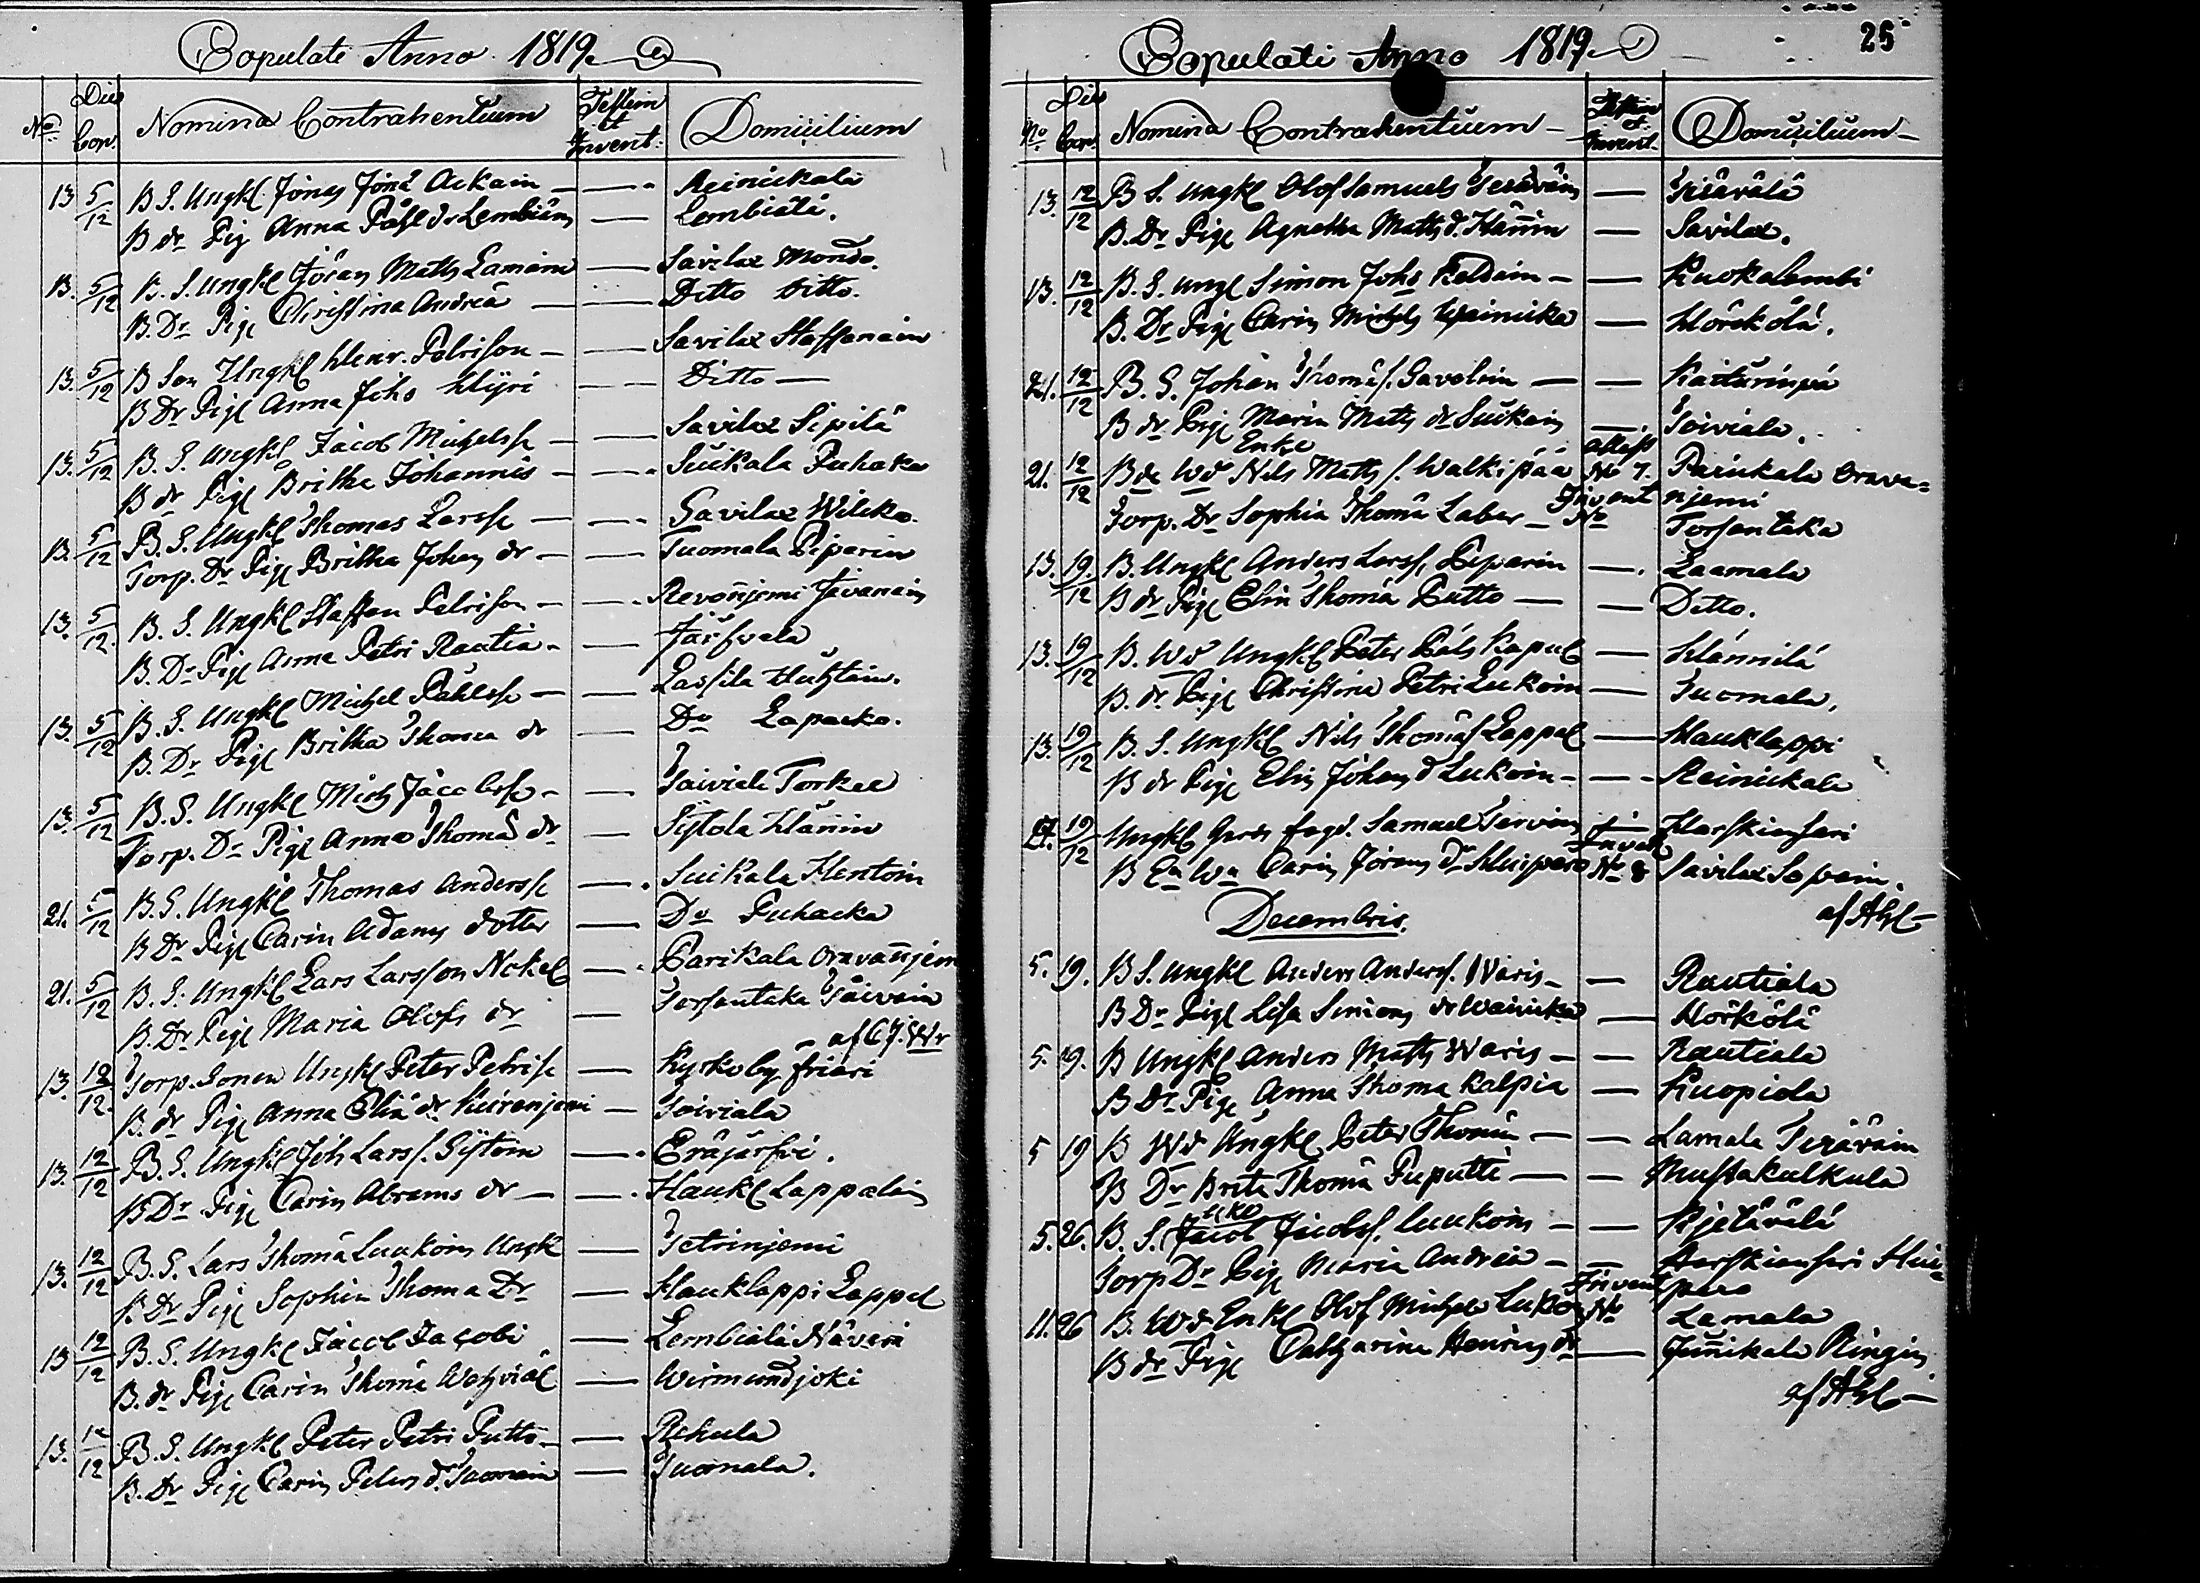 Copulati Anno 1819
No. Die Cop. Nomina Contrahentium Testim et Invent: Domicilium
13 5/12 B S. Ungkl Jöns Jöns Ackain — — Reinickala
B dr Pig Anna Påhl dr Lembiäin — Lembiälä.
13. 5/12 B. S. Ungkl Jöran Matts Lamain — Savilax Mondo.
B. Dr Pige Christina Andreä — Ditto ditto.
13. 5/12 B Son Ungkl Henr. Petrison — — Savilax Staffanain
B Dr Pige Anna Johs Hÿri — — Ditto —
13. 5/12 B. S. Ungkl Jacob Michelss — — Savilax Sipilä
B dr Pige Britha Johannis — — Suikala Puhaka
13. 5/12 B. S. Ungkl Thomas Larss — — Savilax Wilcko.
Torp. Dr Pige Britha Johans dr — — Tuomala Piparin
13. 5/12. B. S. Ungkl Staffan Petrison — — Revonnjemi Jävanain
B. Dr Pige Anna Petri Rautia — — Järfvela
13. 5/12 B. S. Ungkl Michel Påhlss — — Lassila Huhtain.
B. Dr Pige Britha Thoma dr — Do Lapacko.
13. 5/12 B. S. Ungkl Mich Jacobss — — Toiviala Torkel
Torp. Dr Pige Anna Thomä dr — Sÿtola Hännin
21. 5/12 B. S. Ungkl Thomas Anderss — Suikala Hentoin
B Dr Pige Carin Adams dotter — Do Puhacka
21. 5/12 B. S. Ungkl Lars Larsson Nokel — Parikala Oravannjemi
B. Dr Pige Maria Olofs dr — Torsantaka Päivain
af C. J. Wr
13. 12/12. Torp. Sonen Ungkl Peter Petriss — Kyrkoby friari
B. dr Pige Anna Eliä dr Kuirenjemi — Toiviala
13. 12/12 B. S. Ungkl Joh Larss. Sÿtoin — Eräjärfvi.
B Dr Pige Carin Abrams dr — — Haukl Lappalain
13. 12/12 B. S. Lars Thomä Luukoin Ungk — Tetrinjemi
B. Dr Pige Sophia Thoma Dr — Hauklappi Lappel
13 12/12 B. S. Ungkl Jacob Jacobi — Lembiälä Näverä
B. dr Pige Carin Thomä Wohviäl — Wirmundjoki
13. 12/12 B. S. Ungkl Peter Petri Putto — — Rekula
B. Dr Pige Carin Peters d. Tuomain — Tuomala.
Copulati Anno 1819 25
No Die Cop. Nomina Contrahentium — Testim et. Invent. Domicilium —
13. 12/12 B S. Ungkl Olof Samuels Terävain — Terävälä
B. Dr Pige Agnetha Matts d. Hännin — Savilax.
13. 12/12 B. S. Ungl Simon Johs Keldain — — Kuokalembi
B. Dr Pige Carin Michels Wainicka — Hörkölä.
21. 12/12 B. S. Johan Thomäs. Savolain — — Kaiturinpä
B dr Pige Maria Matts dr Suikain — Toiviala.
21. 12/12 B de Wd Enkl Nils Matts s. Walkipää attest No 7. Parikala Orava=
Torp. Dr Sophia Thomä Labar — Invent No njemi Torsantaka
13. 19/12 B. Ungkl Anders Larss. Peparin — Laamala
B dr Pige Elin Thomä Putto — — Ditto.
13. 19/12 B. Wd Ungkl Peter Påls Kapul — Hännilä
B. dr Pige Christina Petri Lukoin — Tuomala.
13. 19/12 B. S. Ungkl Nils Thomäs Lappal — Hauklappi
B dr Pige Elin Johans d Lukoin — — Reinickala
27. 19/12 Ungkl Gards fogd. Samuel Tervoin — Harskiensari
B En Wa Carin Jörans dr Huipero Invent No 8 Savilax Sopain.
af Ahl —
Decembris.
5. 19. B S. Ungkl Anders Anderss. Waris — — Rautiala
B Dr Pige Lisa Simons dr Wainicka — Hörkölä
5. 19. B Ungkl Anders Matts Waris — — Rautiala
B Dr Pige Anna Thoma Kalpia — Kuopiola
5 19 B Wd Ungkl Peter Thomä — — Lamala Terävain
B Dr Brita Thomä Puputti — — Mustakulkula
5. 26. B. S. Jacob Jacobs. Luukoin — — Kjetävälä
Torp Dr Pige Maria Andreä — — Harskiensari Hui=
pero
11. 26 B. Wd Enkl Olof Michels Lukoin Invent No Lamala
B dr Pige Catharina Henrics dr — Junnikala Ringin
af Ahl —